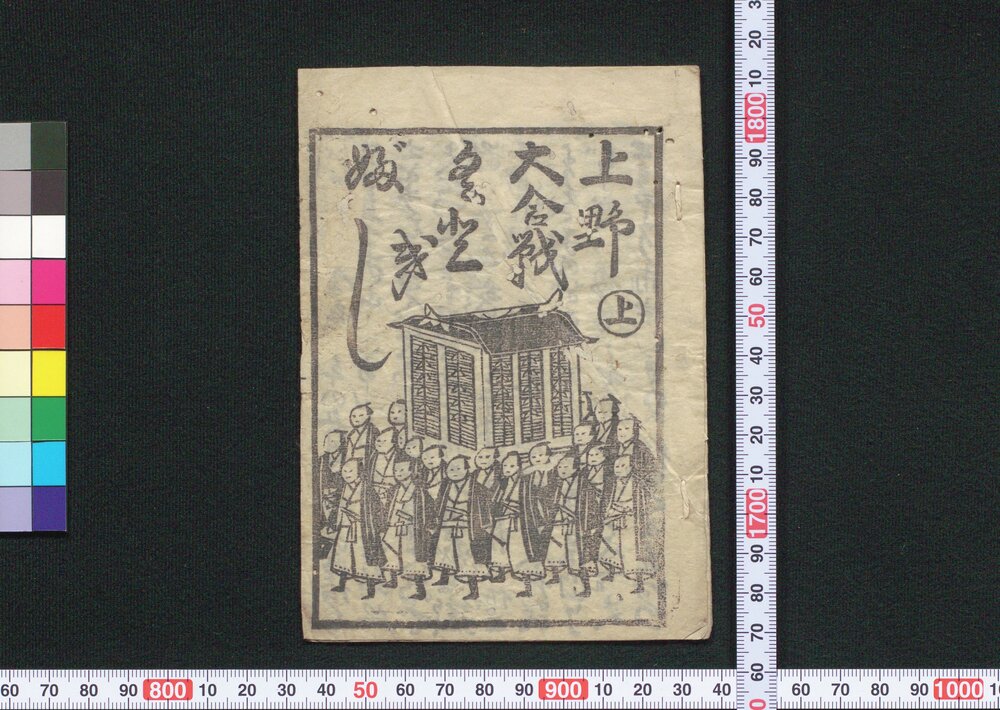 上野
上
大合戦
くど
き
ぶし
60 70 80 90 800 10 20 30 40 50 60 70 80 90 900 10 20 30 40
60 70 80 90 1000
20
10
1800
90
80
70
60
50
40
30
20
10
1700
90
80
70
60